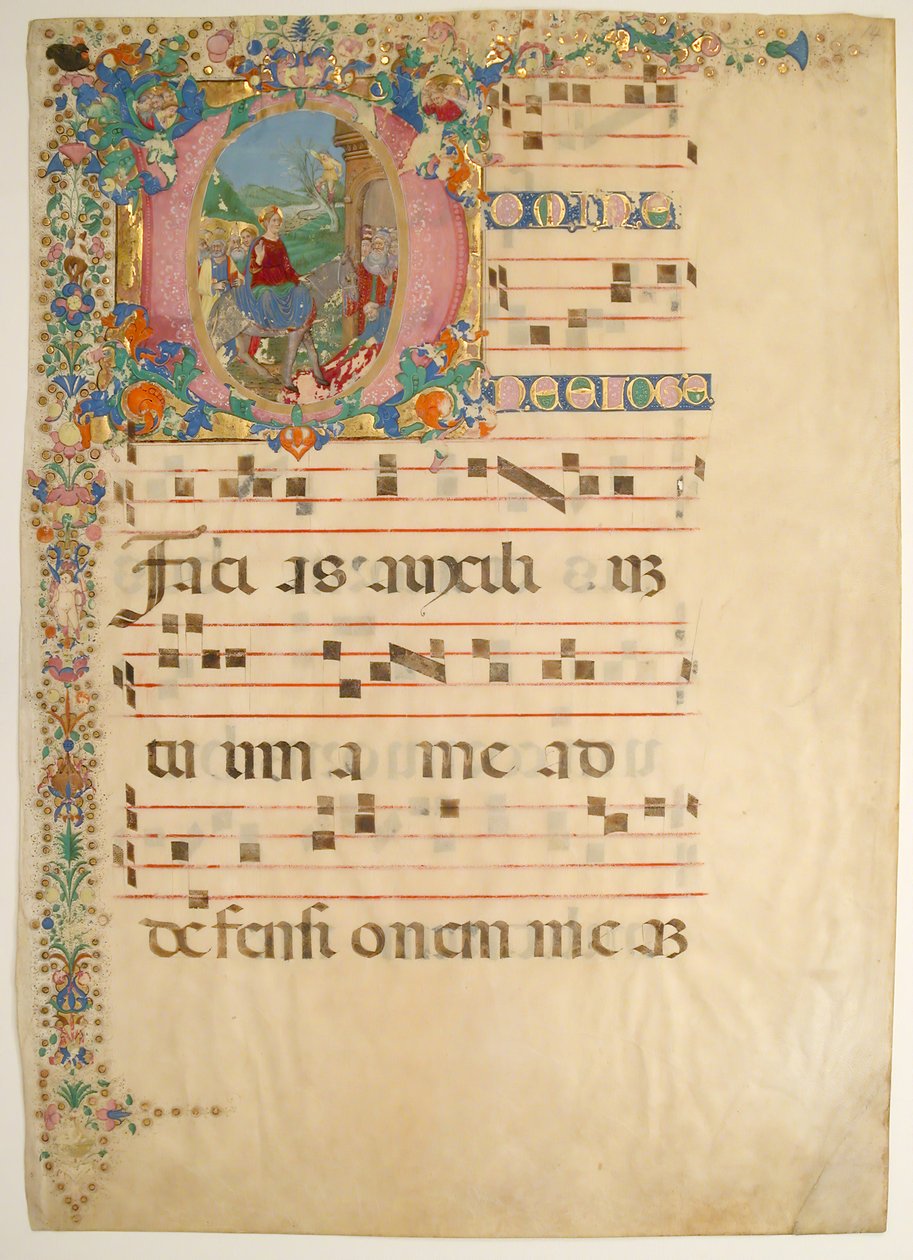 DOMINE
NE ELOGE
Faci as auxili uꝫ
tu um a me ad
defensi onem me aꝫ